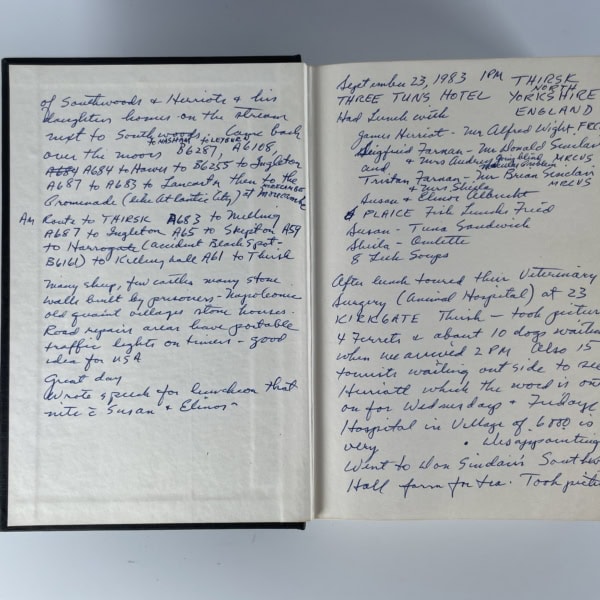 of Southwoods & Herriots & his
daughters homes on the stream
next to Southwoods. Came back
to MASHAM to LEYBURN
over the moors B6287, A6108,
A684 A684 to Hawes to B6255 to Ingleton
A687 to A683 to Lancaster then to the
Promenade (like Atlantic City) at MORECAMBE
Am Route to THIRSK A683 to Melling
A687 to Ingleton A65 to Skipton A59
to Harrogate (accident Black Spot-
B6161) to Killinghall A61 to Thirsk
Many sheep, few cattle many stone
walls built by prisoners - Napoleonic
old quaint villages stone houses.
Road repairs areas have portable
traffic lights on timers - good
idea for USA
Great day
Wrote speech for luncheon that
nite c̄ Susan & Elinor
September 23, 1983 1PM THIRSK
NORTH
THREE TUNS HOTEL YORKSHIRE
Had Lunch with ENGLAND
James Herriot - Mr Alfred Wight, FRC
Siegfried Farnan - Mr Donald Sinclair
and & Mrs Audrey MRCVS
Tristan Farnan - Mr Brian Sinclair
& Mrs Sheila MRCVS
Susan & Elinor Albrecht
PLAICE Fish Lunch Fried
Susan - Tuna Sandwich
Sheila - Omlette
8 Leek Soups
After lunch toured their Veterinary
Surgery (Animal Hospital) at 23
KIRKGATE Thirsk - took picture
4 Ferrets & about 10 dogs waiting
when we arrived 2 PM Also 15
tourists waiting out side to see
Herriott which the word is out
on for Wednesdays & Fridays
Hospital in Village of 6000 is
very . Disappointing
Went to Don Sinclair's Southw
Hall farm for tea. Took pictu